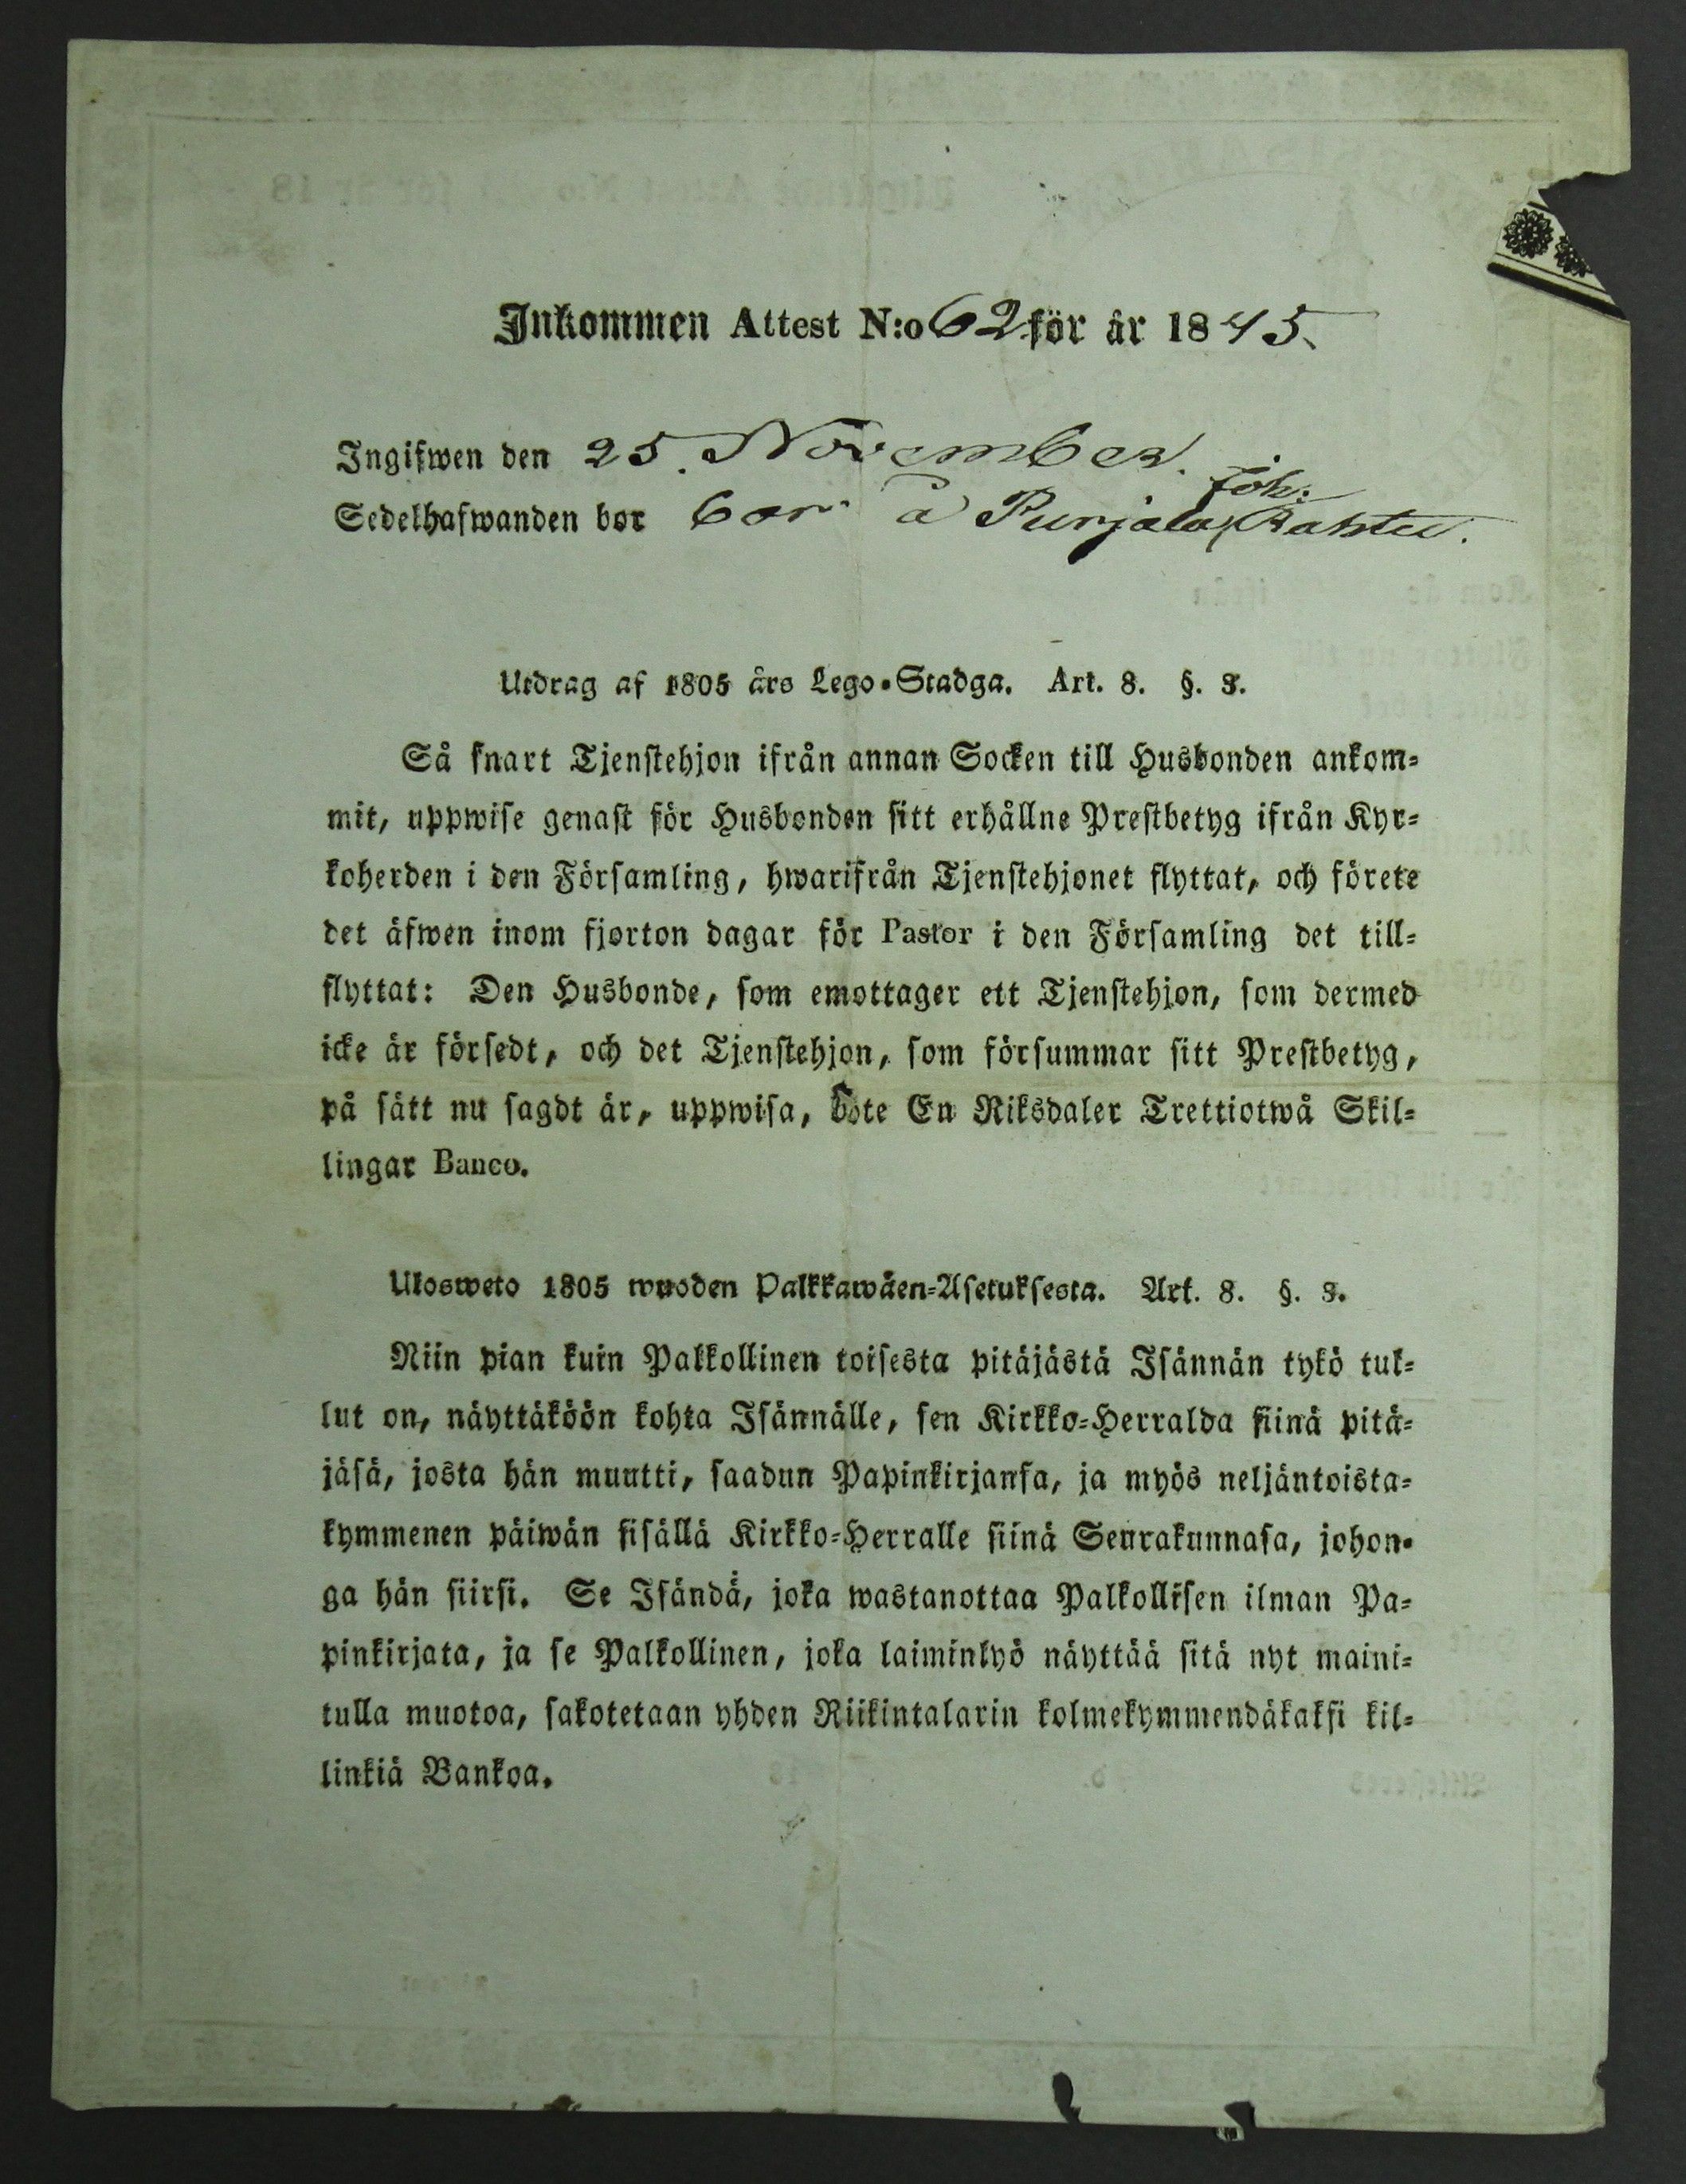 Inkommen Attest N:o 62 för år 1845.
Ingifwen den 25. November.
Joh:
Sedelhafwanden bor bor å Purjala
Utdrag af 1805 års Lego-Stadga. Art. 8. §. 3.
Så snart Tjenstehjon ifrån annan Socken till Husbonden ankom=
mit, uppwise genast för Husbonden sitt erhållne Prestbetyg ifrån Kyr=
koherden i den Församling, hwarifrån Tjenstehjonet flyttat, och förete
det äfwen inom fjorton dagar för Pastor i den Församling det till=
flyttat: Den Husbonde, som emottager ett Tjenstehjon, som dermed
icke är försedt, och det Tjenstehjon, som försummar sitt Prestbetyg,
på sätt nu sagdt är, uppwisa, bote En Riksdaler Trettiotwå Skil=
lingar Banco.
Ulosweto 1805 wuoden Palkkawäen=Asetuksesta. Art. 8. §. 3.
Niin pian kuin Palkollinen toisesta pitäjästä Isännän tykö tul=
lut on, näyttäköön kohta Isännälle, sen Kirkko=Herralda siinä pitä=
jäsä, josta hän muutti, saadun Papinkirjansa, ja myös neljäntoista=
kymmenen päiwän sisällä Kirkko=Herralle siinä Seurakunnasa, johon=
ga hän siirsi. Se Isändä, joka wastanottaa Palkollisen ilman Pa=
pinkirjata, ja se Palkollinen, joka laiminlyö näyttää sitä nyt maini=
tulla muotoa, sakotetaan yhden Riikintalarin kolmekymmendäkaksi kil=
linkiä Bankoa.